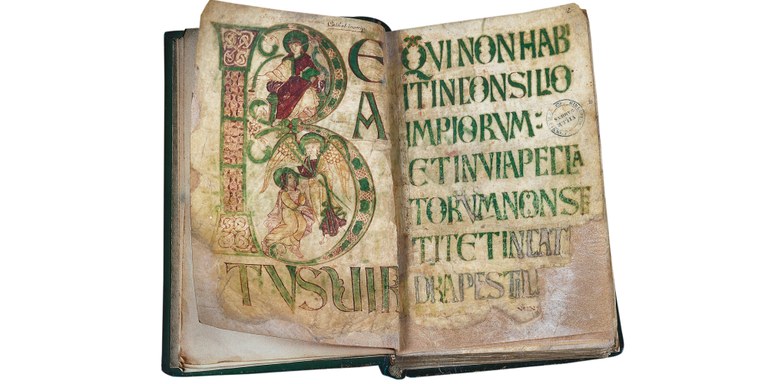 BE
A
TVS VIR
QVI NON HABI
IT IN CONSILIO
IMPIORVM:
ET IN VIA PECCA
TORVM NON STE
TIT ET IN CAT
DRA PESTIL